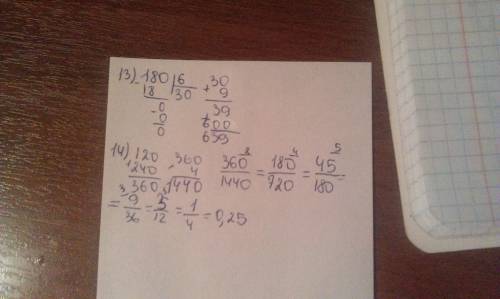 13) -180 | 6   +30
18   30   9
-0   39
0   +600
0   639
14) 120   ×360   360/1440 = 180/720 = 45/180
+240   4
360   1440
= 9/36 = 3/12 = 1/4 = 0,25